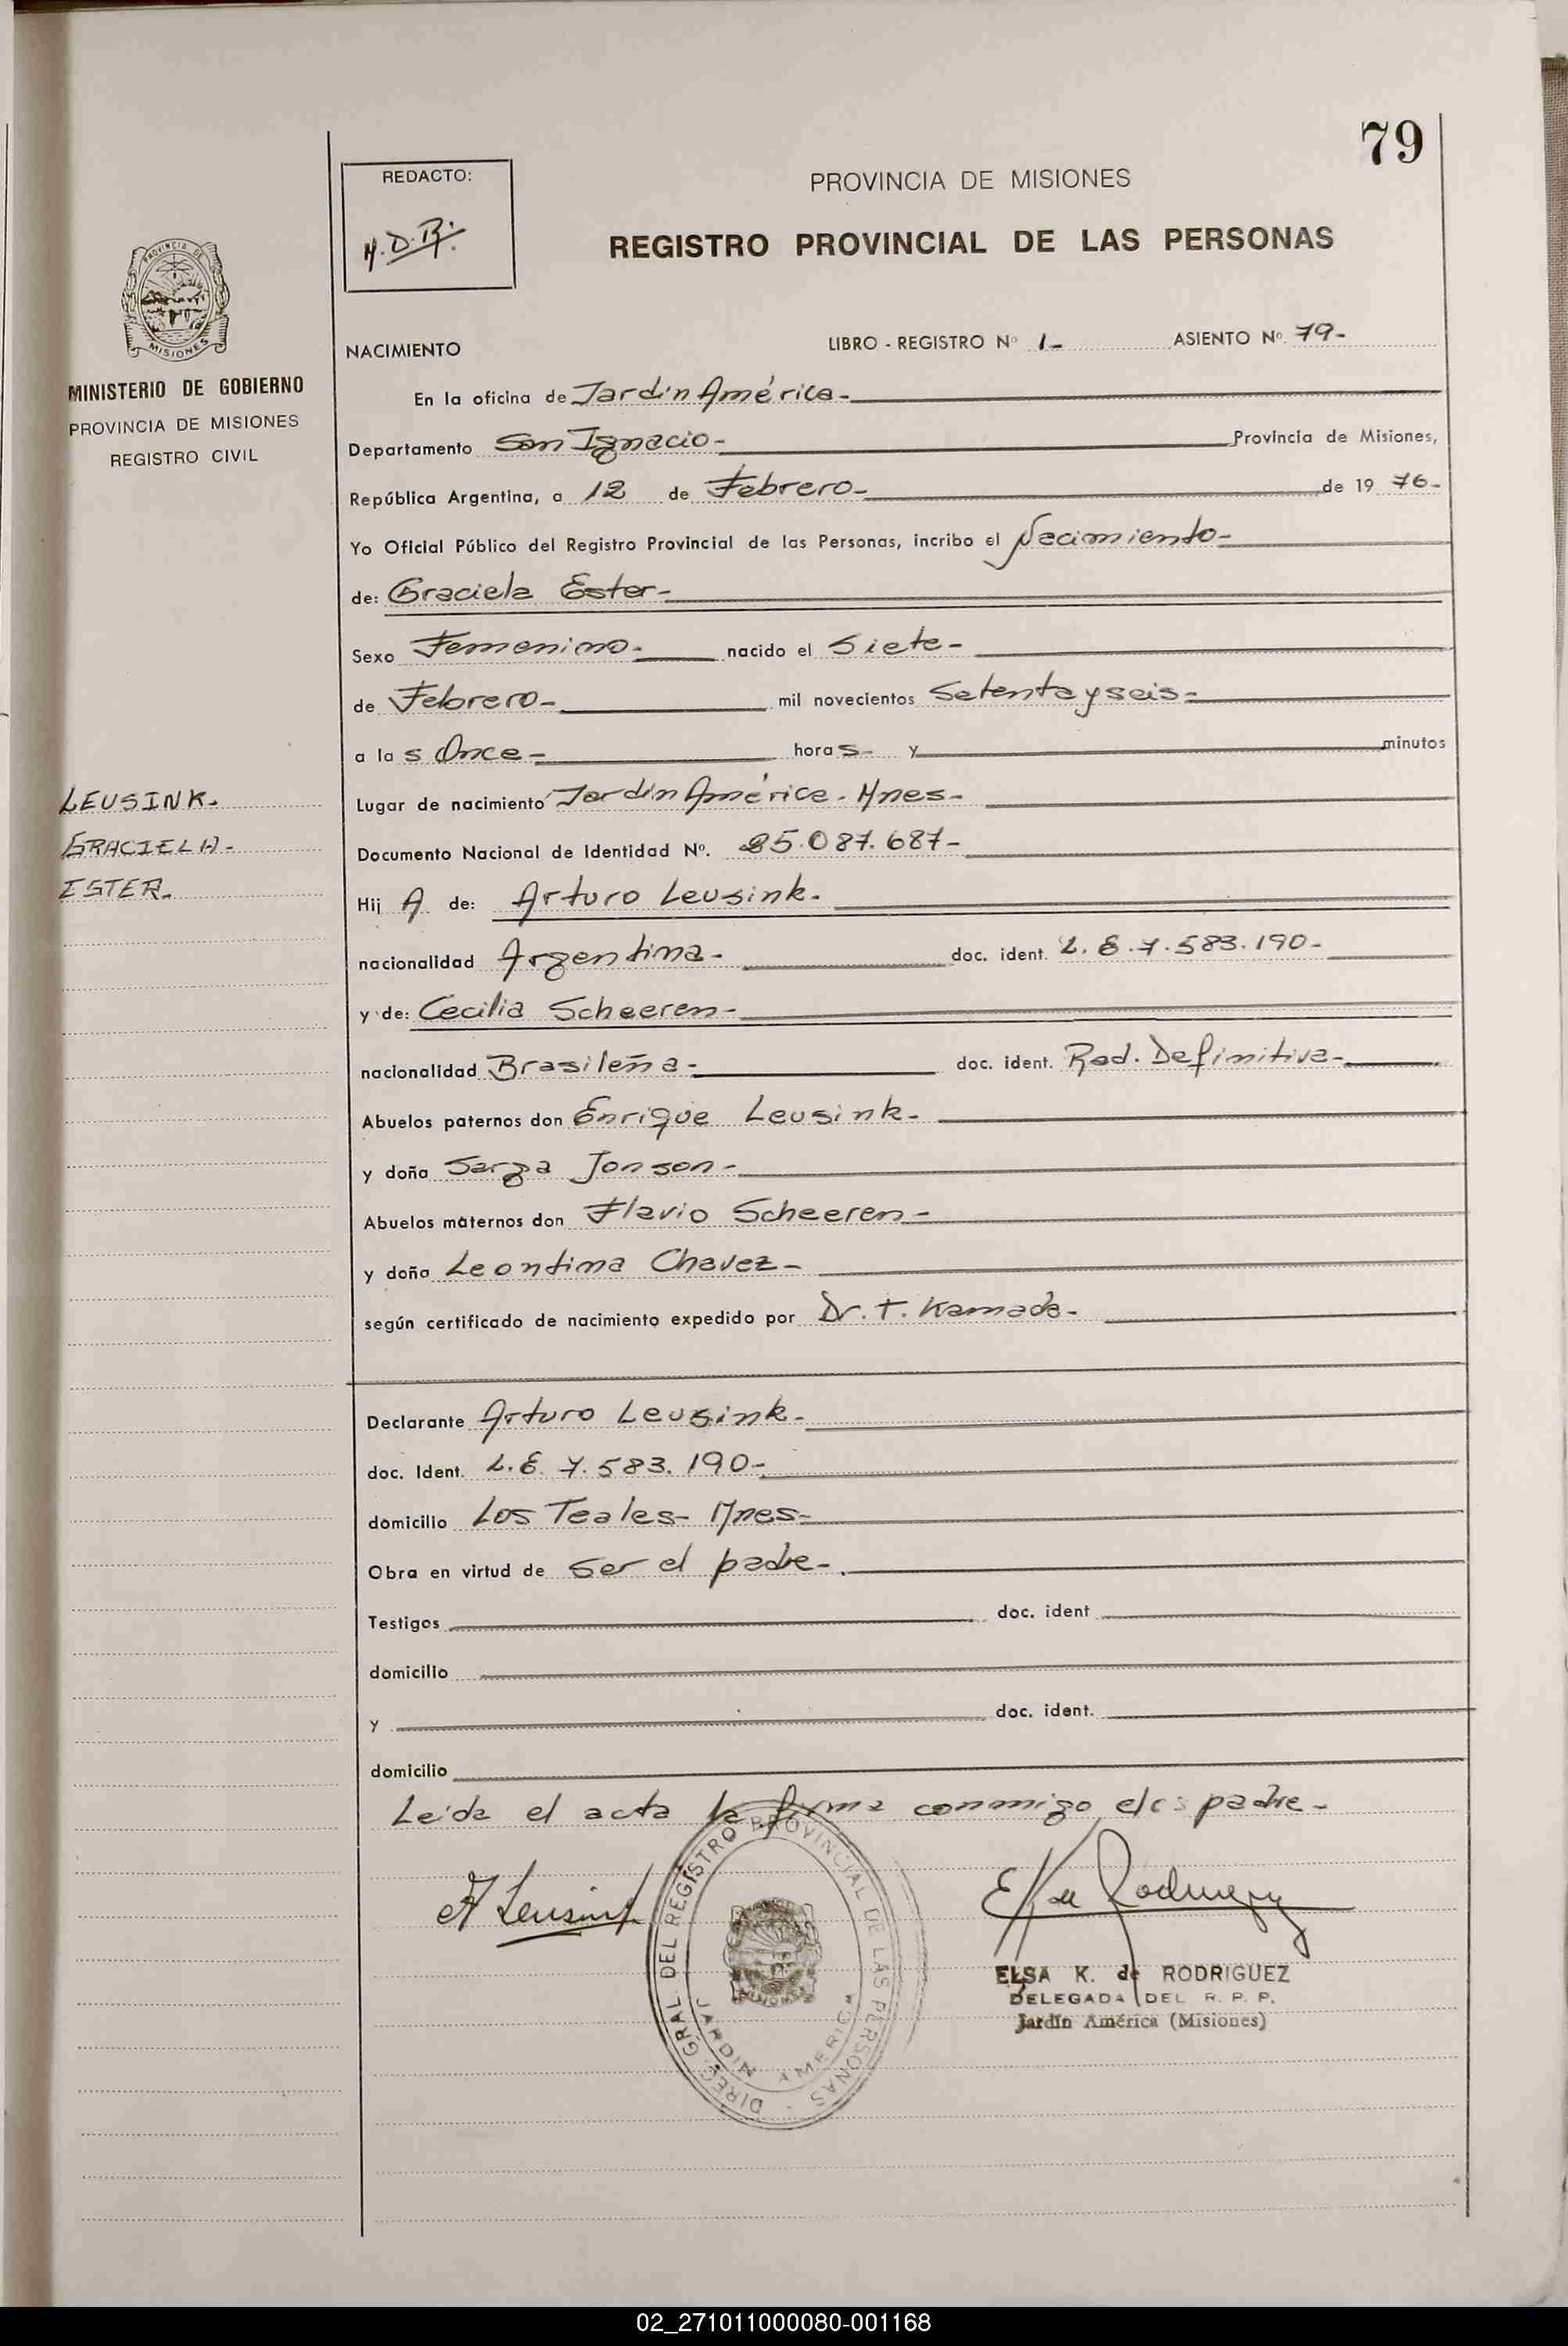 79
REDACTO:
M.D.R.
PROVINCIA DE MISIONES
REGISTRO PROVINCIAL DE LAS PERSONAS
PROVINCIA DE
MISIONES
MINISTERIO DE GOBIERNO
PROVINCIA DE MISIONES
REGISTRO CIVIL
NACIMIENTO LIBRO - REGISTRO Nº 1- ASIENTO Nº 79-
En la oficina de Jardín América-
Departamento San Ignacio- Provincia de Misiones,
República Argentina, a 12 de Febrero- de 19 76-
Yo Oficial Público del Registro Provincial de las Personas, incribo el Nacimiento-
de: Graciela Ester-
Sexo Femenino- nacido el Siete-
de Febrero- mil novecientos Setenta y seis-
a la s Once- hora s- y minutos
LEUSINK.
GRACIELA-
ESTER.
Lugar de nacimiento Jardín América- Mnes-
Documento Nacional de Identidad Nº. 25.087.687-
Hij A de: Arturo Leusink.
nacionalidad Argentina- doc. ident. L.E.7.583.190-
y de: Cecilia Scheeren-
nacionalidad Brasileña- doc. ident. Rad. Definitiva-
Abuelos paternos don Enrique Leusink-
y doña Sarga Jonson-
Abuelos maternos don Flavio Scheeren-
y doña Leontina Chavez-
según certificado de nacimiento expedido por Dr. T. Kamada-
Declarante Arturo Leusink-
doc. Ident. L.E. 7.583.190-
domicilio Los Teales- Mnes-
Obra en virtud de ser el padre-
Testigos doc. ident
domicilio
y doc. ident.
domicilio
Leída el acta la firma conmigo el padre-
A Leusink
E K de Rodriguez
DIREC. GRAL. DEL REGISTRO PROVINCIAL DE LAS PERSONAS -
JARDIN AMERICA
ELSA K. de RODRIGUEZ
DELEGADA DEL R. P. P.
Jardín América (Misiones)
02_271011000080-001168